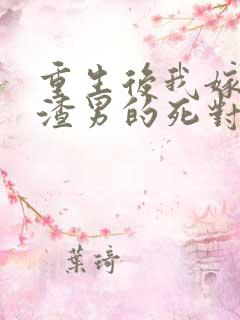 重生後我嫁
渣男的死對
葉琦